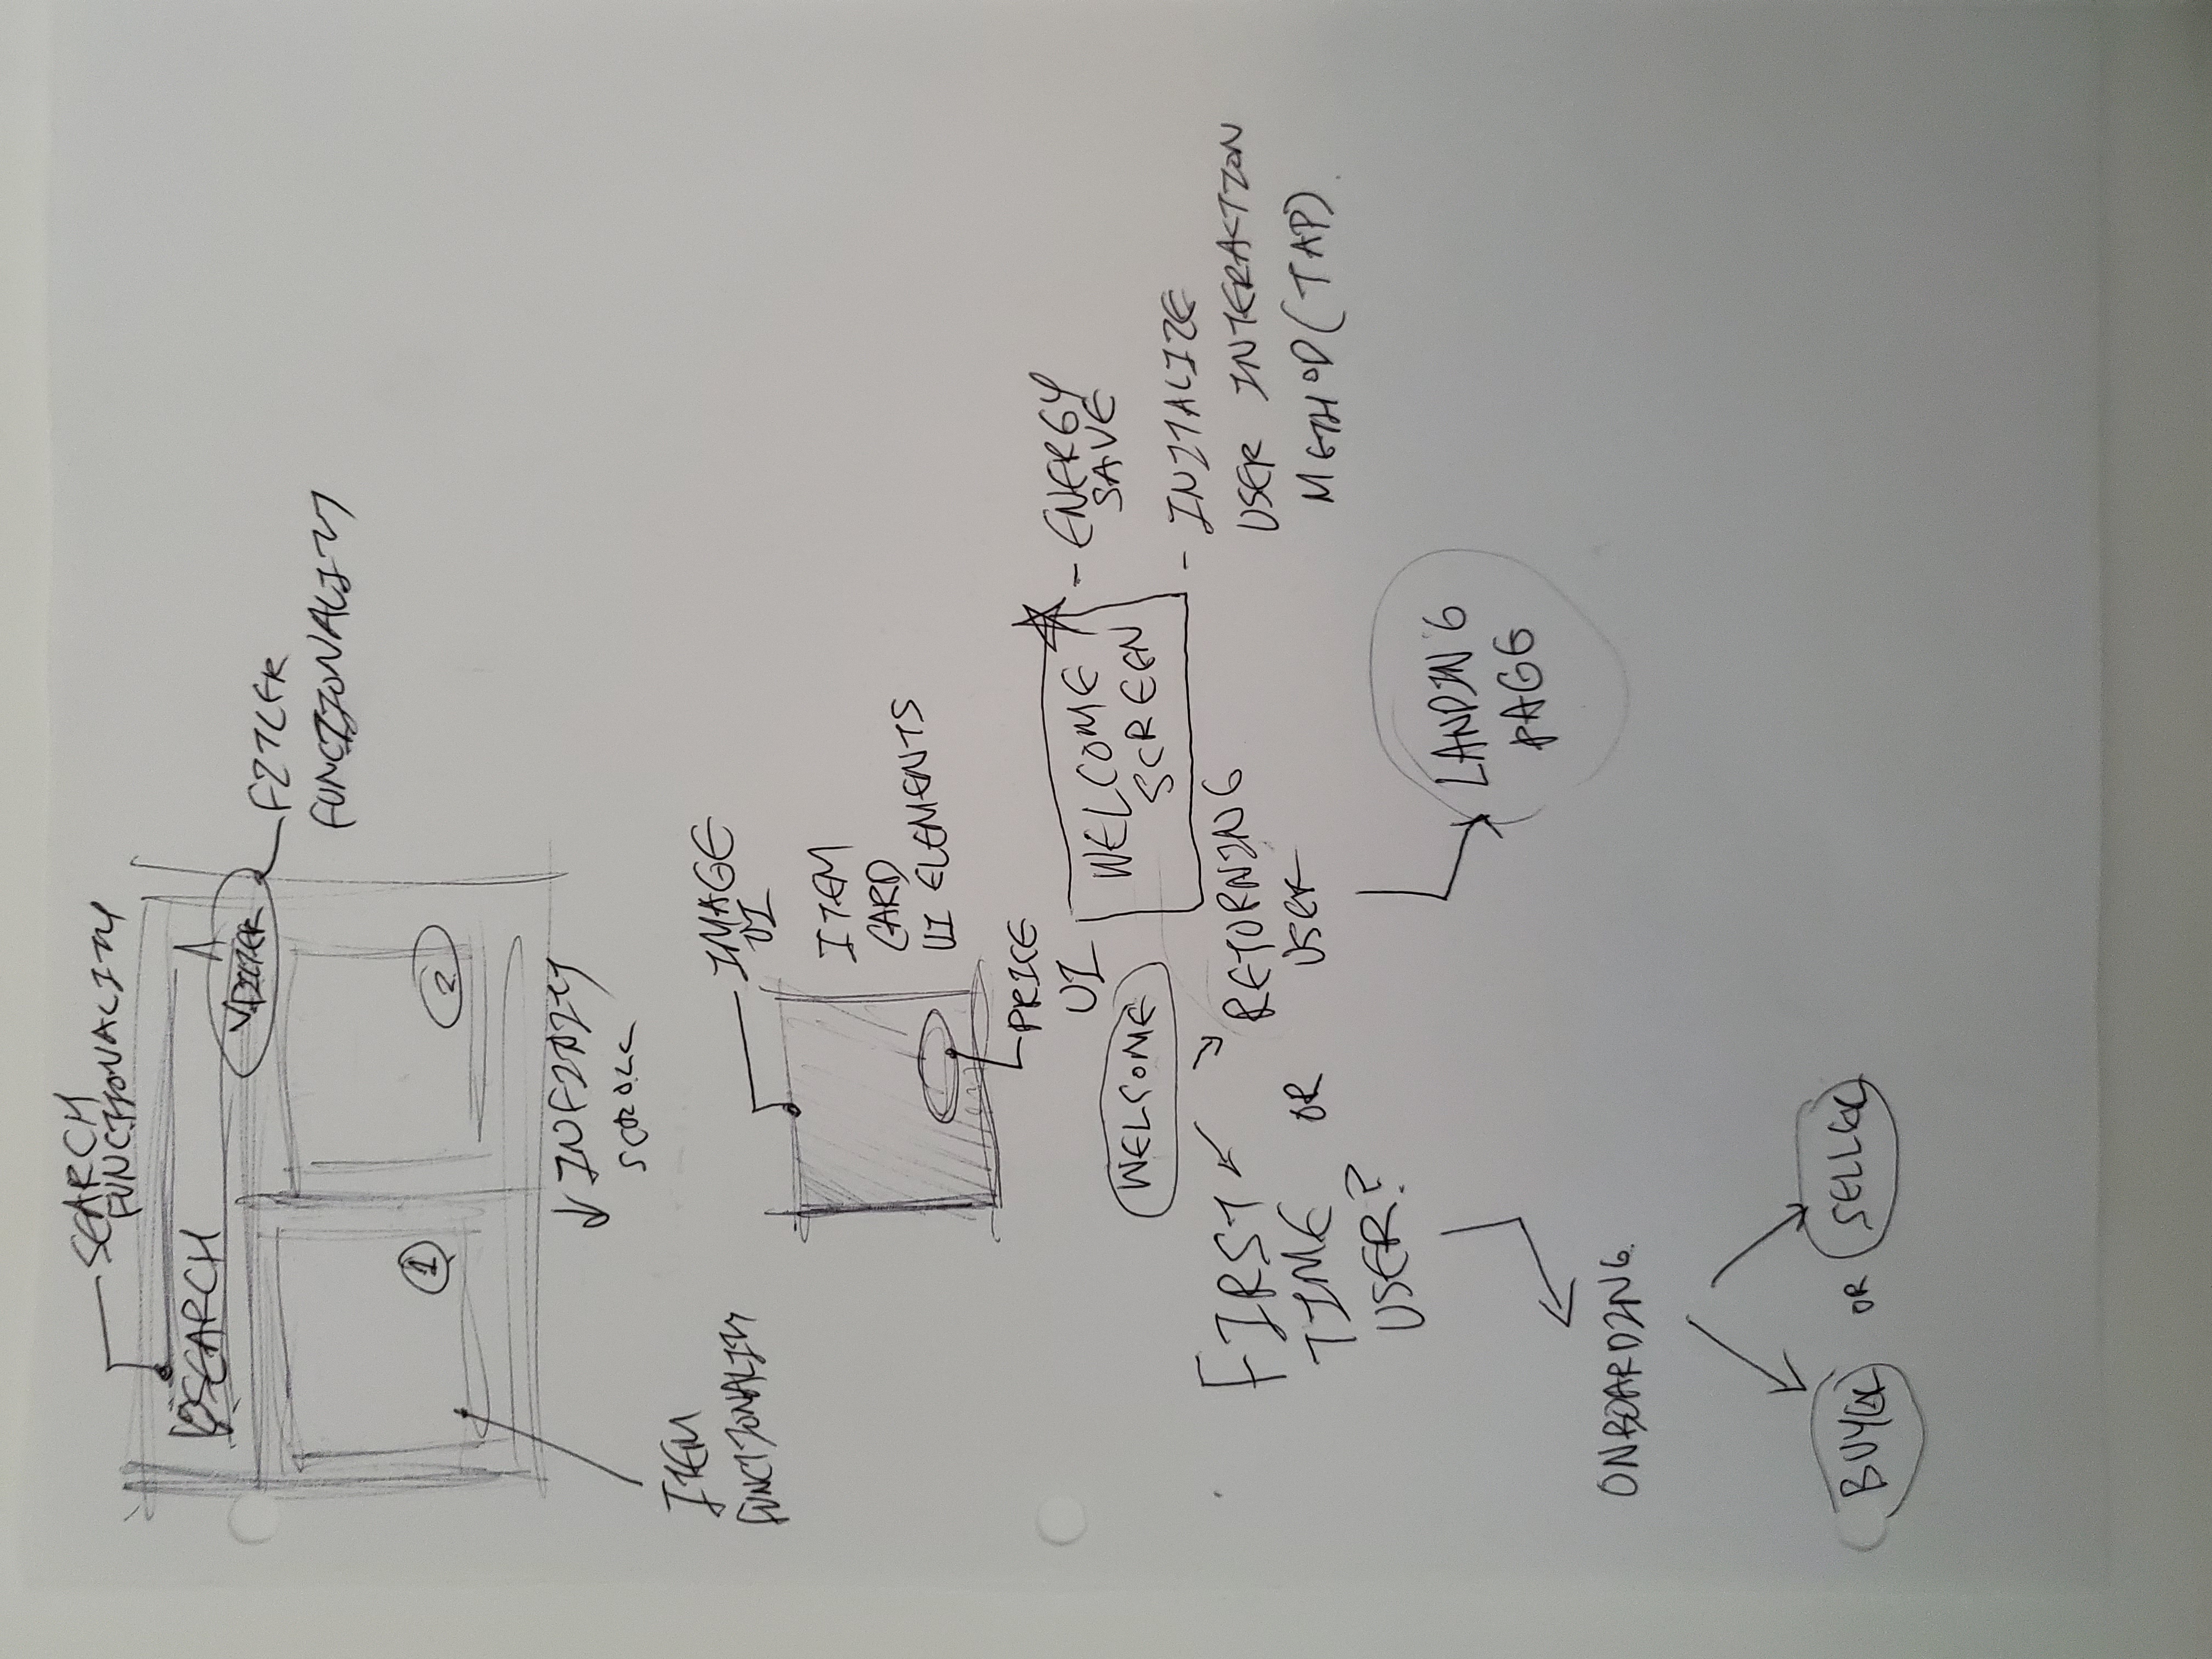 SEARCH
FUNCTIONALITY
SEARCH
FILTER
FITLER
FUNCTIONALITY
1
2
INFINITY
SCROLL
ITEM
FUNCTIONALITY
IMAGE
UI
ITEM
CARD
UI ELEMENTS
PRICE
UI
WELCOME
SCREEN
- ENERGY
SAVE
- INITALIZE
USER INTERACTION
METHOD (TAP)
WELCOME
FIRST
TIME
USER?
OR
RETURNING
USER
LANDING
PAGE
ONBOARDING
BUYER OR SELLER